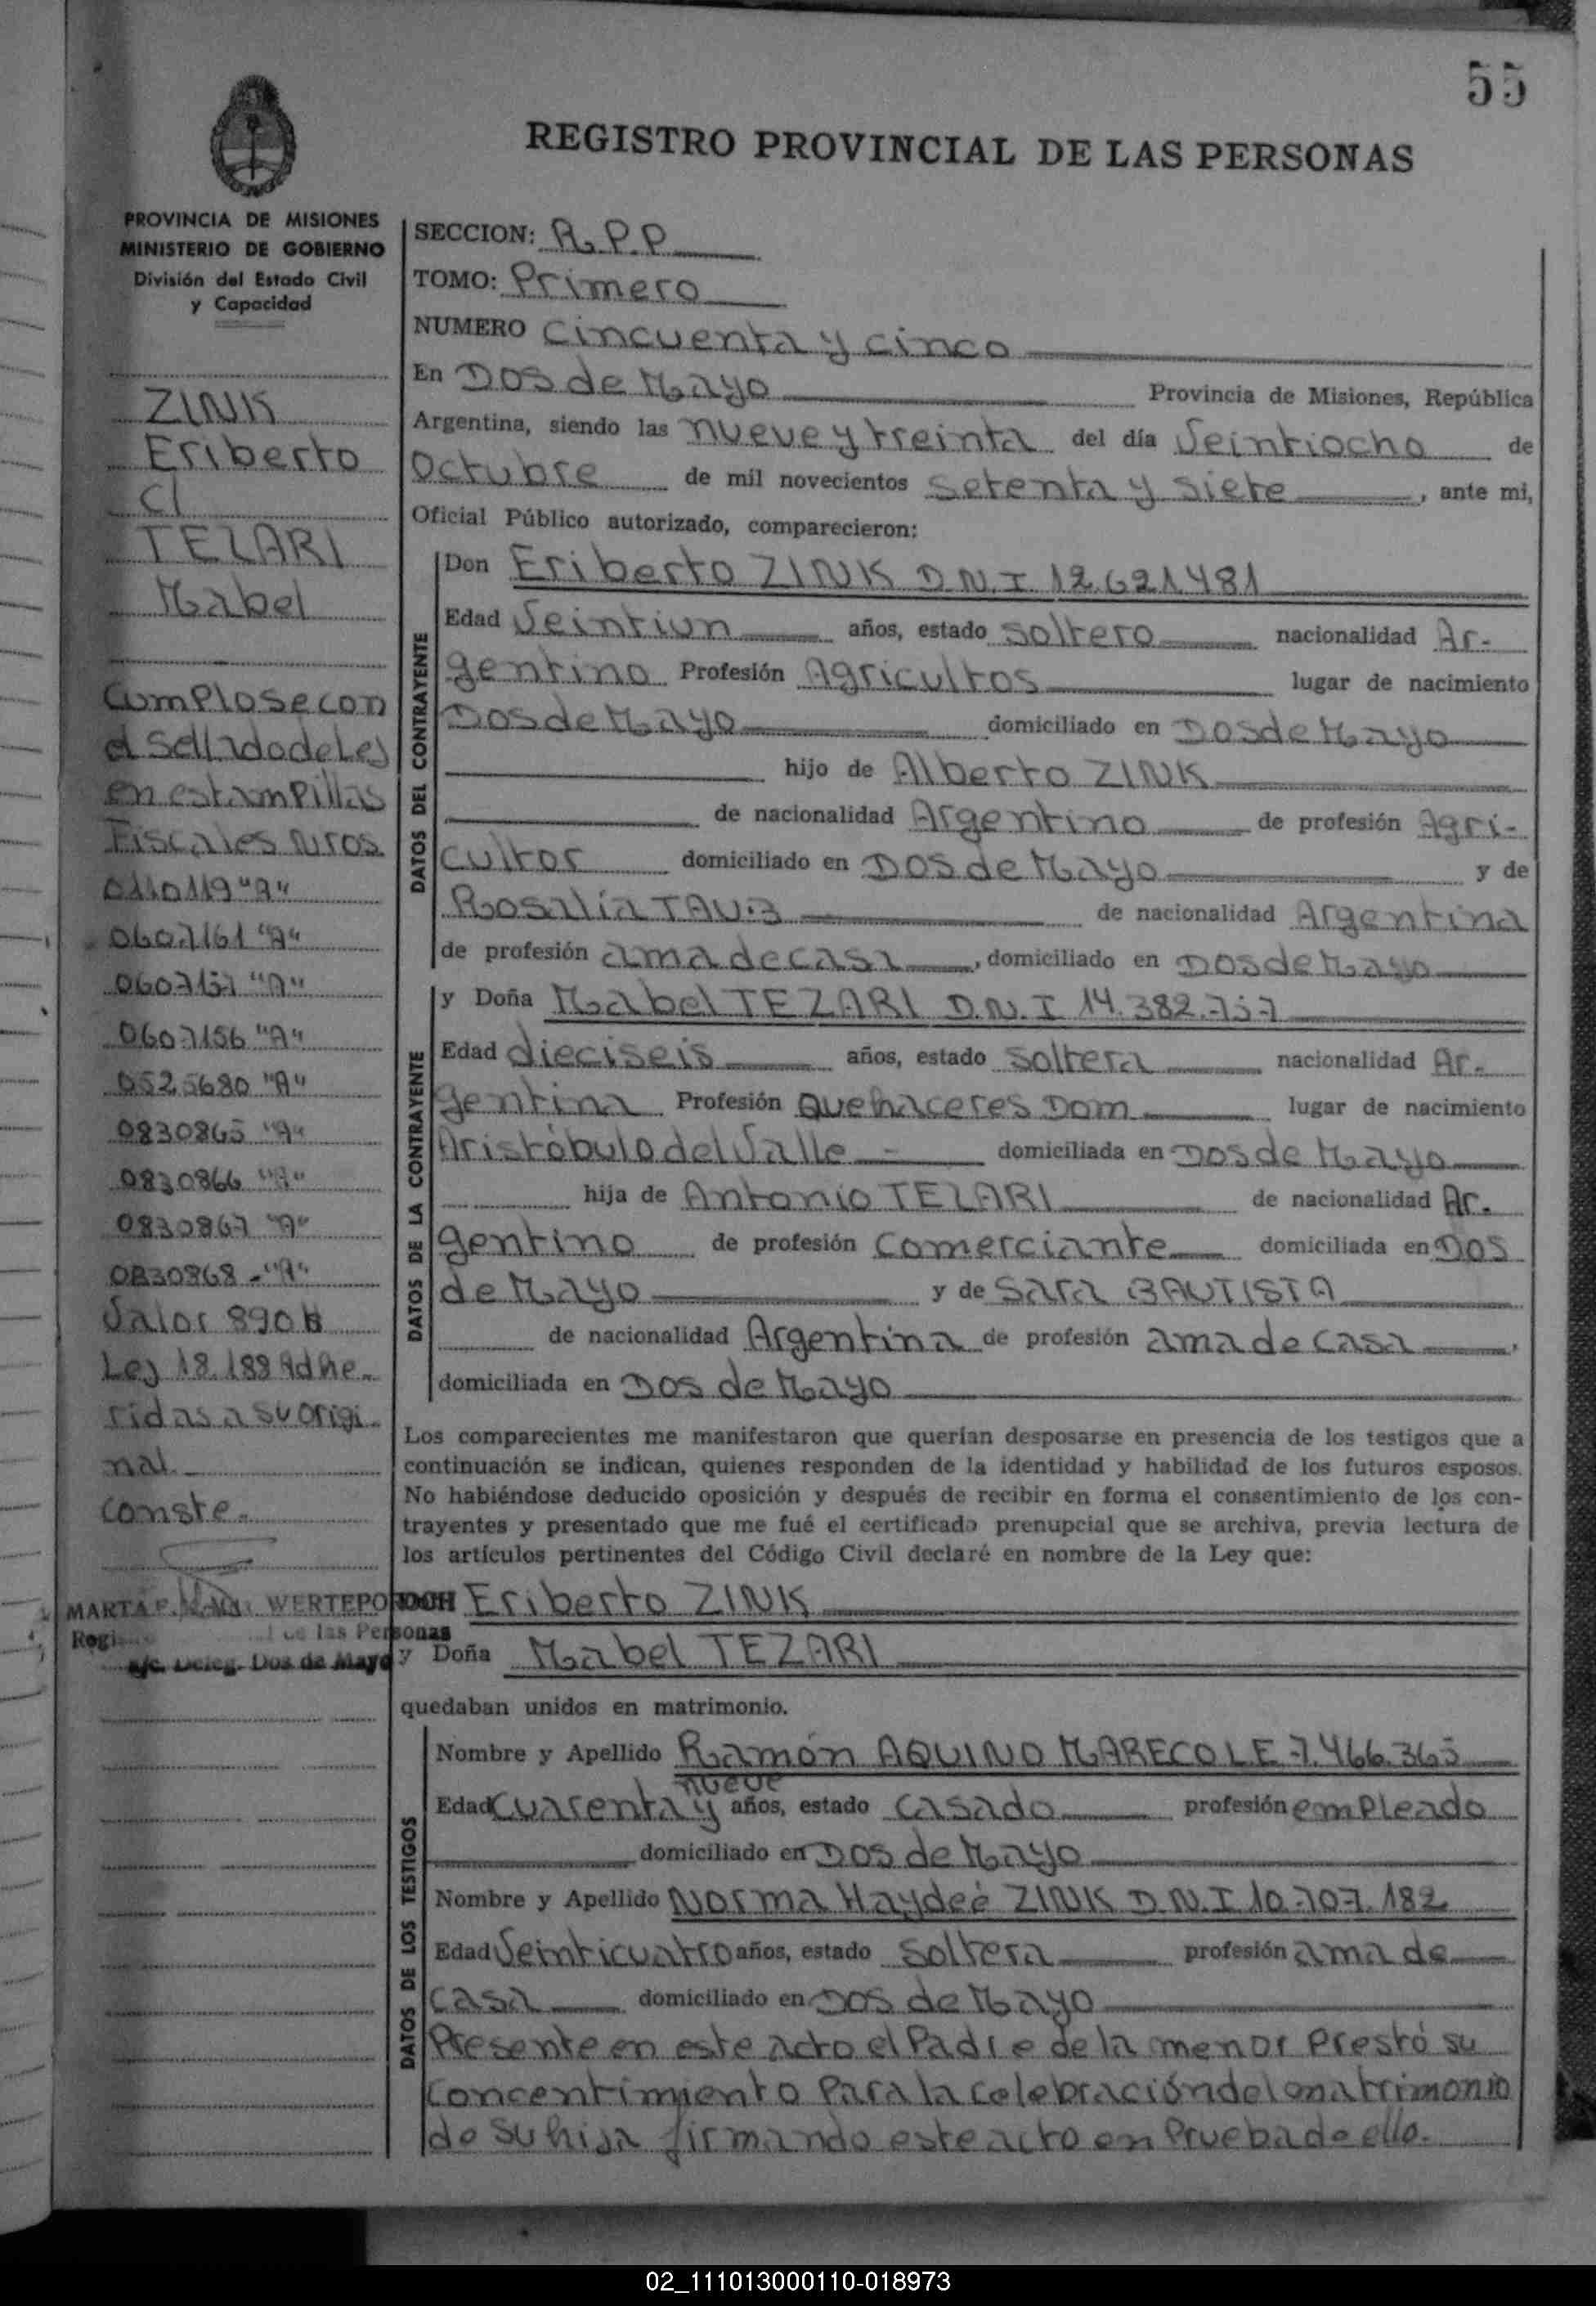 55
REGISTRO PROVINCIAL DE LAS PERSONAS
PROVINCIA DE MISIONES
MINISTERIO DE GOBIERNO
División del Estado Civil
y Capacidad
ZINK
Eriberto
C/
TEZARI
Mabel
Cumplose con
el sellado de Ley
en estampillas
Fiscales nros
0110119 "A"
0607161 "A"
0607157 "A"
0607156 "A"
0525680 "A"
0830865 "A"
0830866 "A"
0830867 "A"
0830868 - "A"
Valor 890
Ley 18.188 Adhe-
ridas a su origi-
nal
conste.
MARTA WERTEPO
las Personas
Deleg. Dos de Mayo
SECCION: R.P.P
TOMO: Primero
NUMERO Cincuenta y cinco
En Dos de Mayo Provincia de Misiones, República
Argentina, siendo las nueve y treinta del día Veintiocho de
Octubre de mil novecientos setenta y siete, ante mi,
Oficial Público autorizado, comparecieron:
DATOS DEL CONTRAYENTE
Don Eriberto ZINK D.N.I 12.621.481
Edad Veintiun años, estado soltero nacionalidad Ar-
gentino Profesión Agricultos lugar de nacimiento
Dos de Mayo domiciliado en Dos de Mayo
hijo de Alberto ZINK
de nacionalidad Argentino de profesión Agri-
cultor domiciliado en Dos de Mayo y de
Rosalía de nacionalidad Argentina
de profesión ama de casa, domiciliado en Dos de Mayo
DATOS DE LA CONTRAYENTE
y Doña Mabel TEZARI D.N.I 14.382.757
Edad dieciseis años, estado soltera nacionalidad Ar-
gentina Profesión Quehaceres Dom lugar de nacimiento
Aristóbulo del Valle - domiciliada en Dos de Mayo
hija de Antonio TEZARI de nacionalidad Ar-
gentino de profesión Comerciante domiciliada en Dos
de Mayo y de Sara BAUTISTA
de nacionalidad Argentina de profesión ama de casa,
domiciliada en Dos de Mayo
Los comparecientes me manifestaron que querían desposarse en presencia de los testigos que a
continuación se indican, quienes responden de la identidad y habilidad de los futuros esposos.
No habiéndose deducido oposición y después de recibir en forma el consentimiento de los con-
trayentes y presentado que me fué el certificado prenupcial que se archiva, previa lectura de
los artículos pertinentes del Código Civil declaré en nombre de la Ley que:
Eriberto ZINK
y Doña Mabel TEZARI
quedaban unidos en matrimonio.
DATOS DE LOS TESTIGOS
Nombre y Apellido Ramón AQUINO MARECO L.E 7.466.365
nueve
Edad Cuarenta y años, estado casado profesión empleado
domiciliado en Dos de Mayo
Nombre y Apellido Norma Haydeé ZINK D.N.I 10.707.182
Edad Veinticuatro años, estado soltera profesión ama de
casa domiciliado en Dos de Mayo
Presente en este acto el Padre de la menor Prestó su
concentimiento Para la celebración del matrimonio
de su hija firmando este acto en Prueba de ello.
02_111013000110-018973